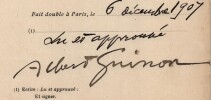 Fait double à Paris, le 6 décembre 1907
(1) Lu et approuvé
Albert Guinon
(1) Ecrire : Lu et approuvé
Et signer.